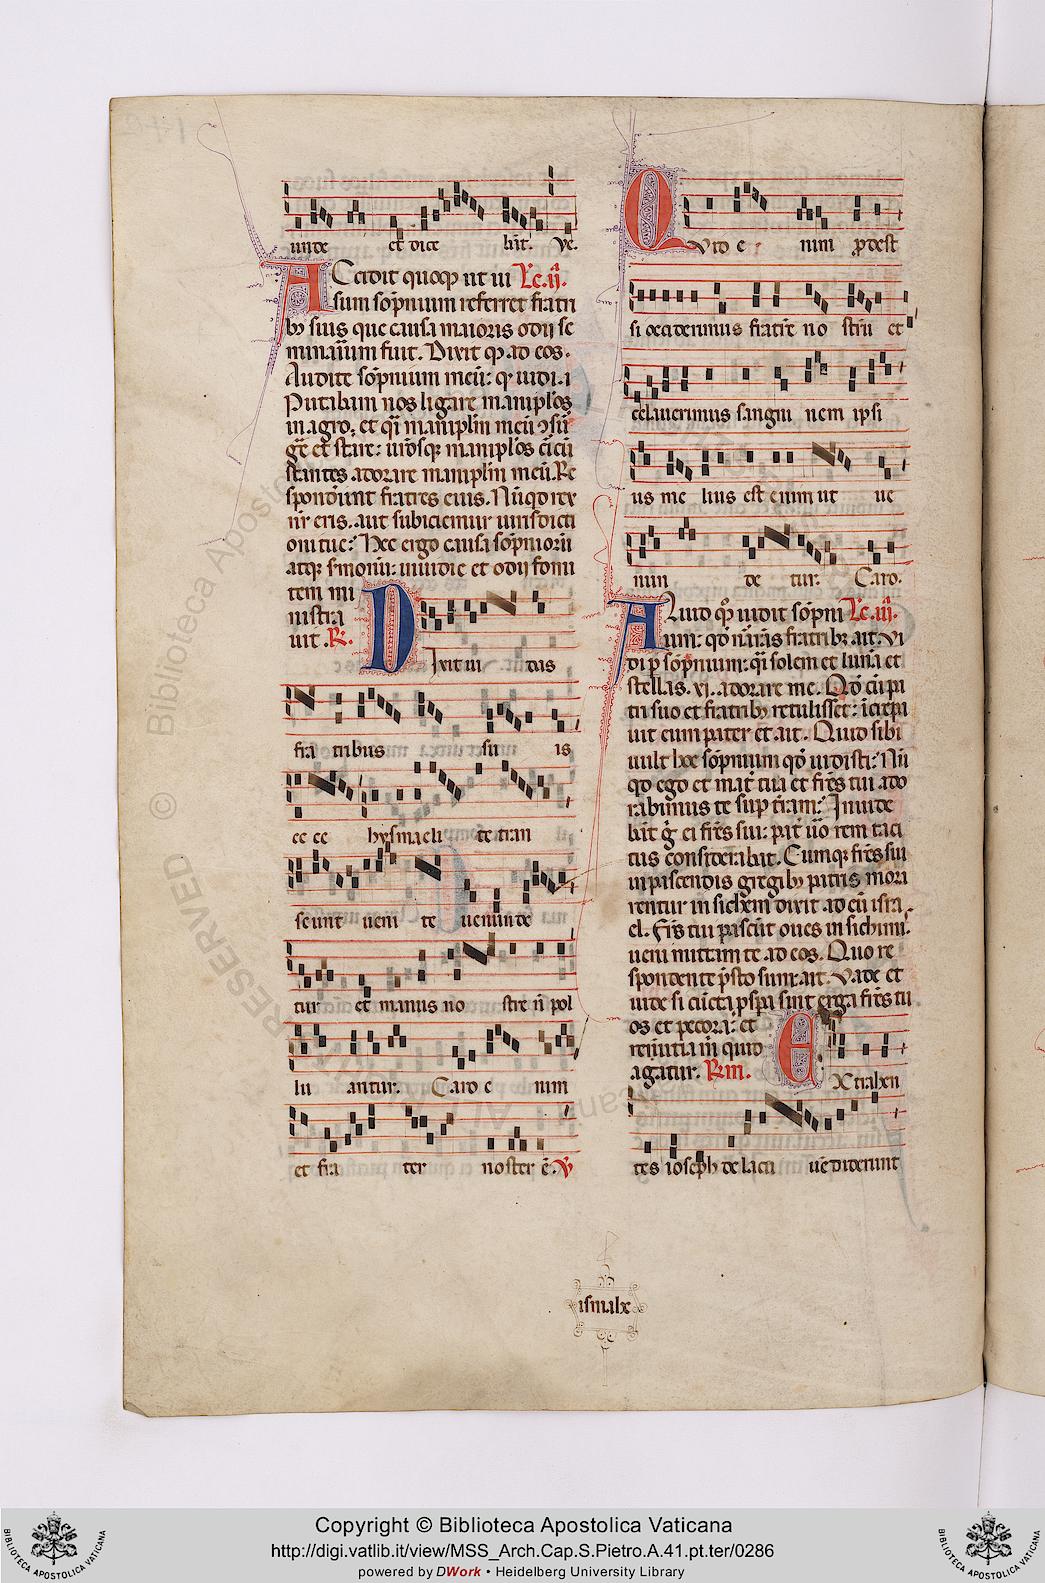 iunte et dice bit. Ve.
ACcidit quoq ut ui Lc.ii.
sum sopnium referret fratri
bꝰ suis que causa maioris odij se
minarium fuit. Dixit qꝫ ad eos.
Audite sopnium meũ: qꝫ uidi. i
Putabam nos ligare maniplos
in agro, et q̃i maniplm meũ ꝯsũ
ge᷑ et stare: ur̃osqꝫ maniplos c̃icũ
stantes adorare maniplm meũ. Re
sponderunt fratres eius. Nũqd rex
nr̃ eris. aut subiciemur iurisdicti
oni tue: Hec ergo causa sopniorũ
atqꝫ s̃monũ: inuidie et odij fomi
tem mi
nistra
uit. R.
Dixit iu das
fra tribus su is
ec ce hysmaeli te tran
seunt ueni te uenunde
tur et manus no stre ñ pol
lu antur. Caro e nim
et fra ter noster ẽ. V
Quid e nim prodest
si occiderimus fratrẽ no strũ et
celauerimus sangui nem ipsi
us me lius est enim ut ue
nun de tur. Caro.
Aliud qꝫ uidit sopni Lc.iii.
um: qd narrãs fratribꝫ ait. Vi
di p sopnium: q̃i solem et lunã et
stellas. xi. adorare me. Qd̃ cũ pi
tri suo et fratribꝫ retulisset: ĩcrepi
uit eum pater et ait. Quid sibi
uult hoc sopnium qd̃ uidisti: Nũ
qd ego et mat̃ tua et frẽs tui ado
rabimus te sup terram: Inuide
bãt g̃ ei frẽs sui: pat̃ u̾o rem taci
tus considerabat. Cumqꝫ frẽs sui
in pascendis gregibꝫ patris mora
rentur in sichem dixit ad eũ isra
el. Frẽs tui pascũt oues in sichimi.
ueni mittam te ad eos. Quo re
spondente p̃sto sum: ait. Vade et
uide si cũcta pspa sint erga frẽs tu
os et pecora: et
renũtia m̃ quid
agatur. Rm.
Extrahen
tes ioseph de lacu uẽdiderunt
ismalx
Copyright © Biblioteca Apostolica Vaticana
http://digi.vatlib.it/view/MSS_Arch.Cap.S.Pietro.A.41.pt.ter/0286
powered by DWork • Heidelberg University Library
BIBLIOTECA APOSTOLICA VATICANA
BIBLIOTECA APOSTOLICA VATICANA